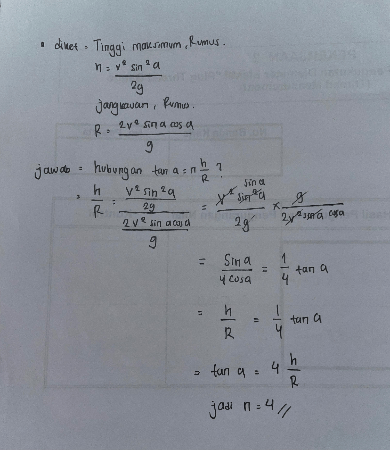 • diket = Tinggi maksimum, Rumus.
h = v² sin²a
2g
jangkauan, Rumus.
R = 2v² sin a cos a
g
jawab = hubungan tan a = n h/R ?
= h/R = v² sin²a / 2g / 2v² sin a cos a / g = v² sin²a sin a / 2g × g / 2v² sin a cos a
= sin a / 4 cos a = 1/4 tan a
= h/R = 1/4 tan a
= tan a = 4 h/R
jadi n = 4 //